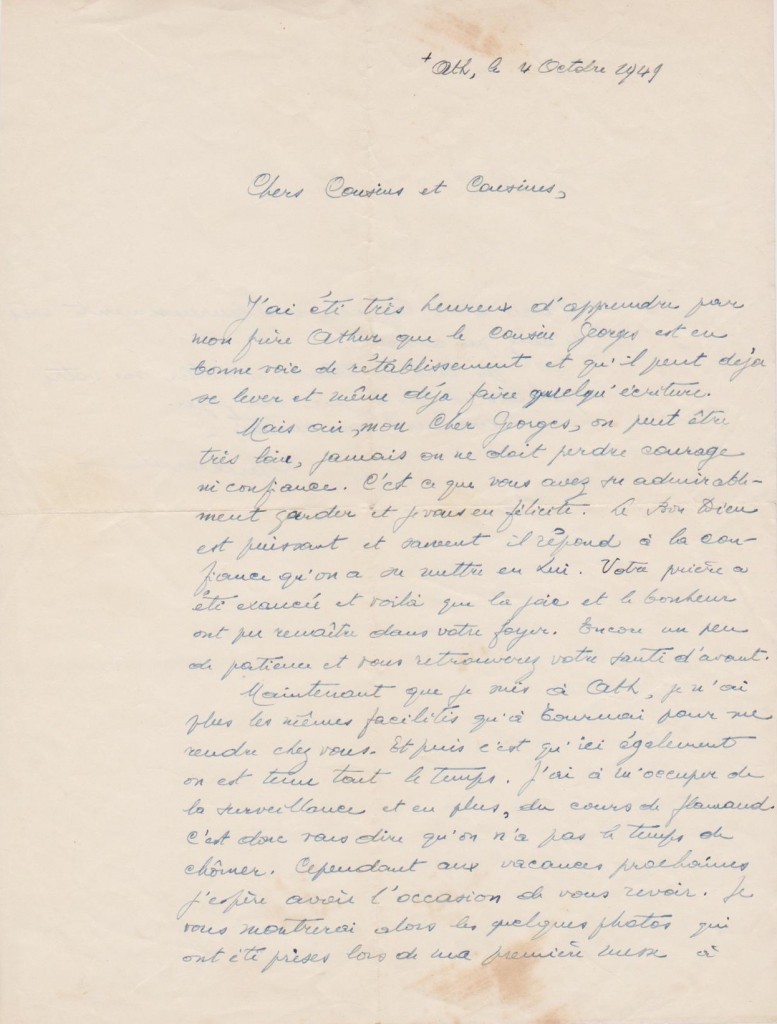 + Ath, le 4 Octobre 1949
Chers Cousins et Cousines,
J'ai été très heureux d'apprendre par
mon frère Athur que le cousin Georges est en
bonne voie de rétablissement et qu'il peut déja
se lever et même déja faire quelqu'écriture.
Mais oui, mon Cher Georges, on peut être
très loin, jamais on ne doit perdre courage
ni confiance. C'est ce que vous avez su admirable-
ment garder et je vous en félicite. Le Bon Dieu
est puissant et souvent il répond à la con-
fiance qu'on a su mettre en Lui. Votre prière a
été exaucée et voilà que la joie et le bonheur
ont pu renaître dans votre foyer. Encore un peu
de patience et vous retrouverez votre santé d'avant.
Maintenant que je suis à Ath, je n'ai
plus les mêmes facilités qu'à Tournai pour me
rendre chez vous. Et puis c'est qu'ici également
on est tenu tout le temps. J'ai à m'occuper de
la surveillance et en plus, du cours de flamand.
C'est donc vous dire qu'on n'a pas le temps de
chômer. Cependant aux vacances prochaines
j'espère avoir l'occasion de vous revoir. Je
vous montrerai alors les quelques photos qui
ont été prises lors de ma première messe à